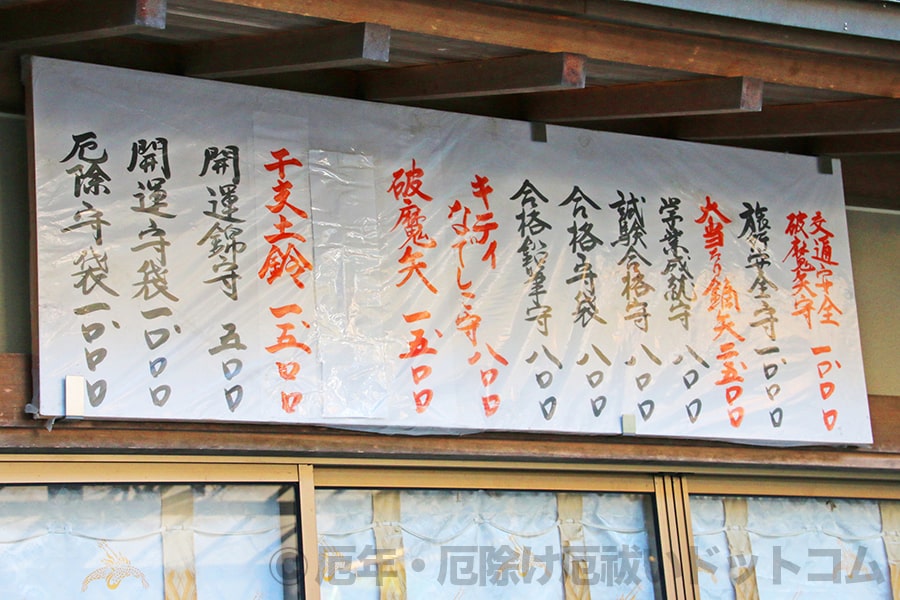 交通安全
破魔矢守 一、〇〇〇
旅行安全守 一、〇〇〇
大当り鏑矢 二、五〇〇
学業成就守 八〇〇
試験合格守 八〇〇
合格守袋 八〇〇
合格鉛筆守 八〇〇
キティ
なでしこ守 八〇〇
破魔矢 一、五〇〇
干支土鈴 一、五〇〇
開運錦守 五〇〇
開運守袋 一、〇〇〇
厄除守袋 一、〇〇〇
©厄年・厄除け厄祓いドットコム